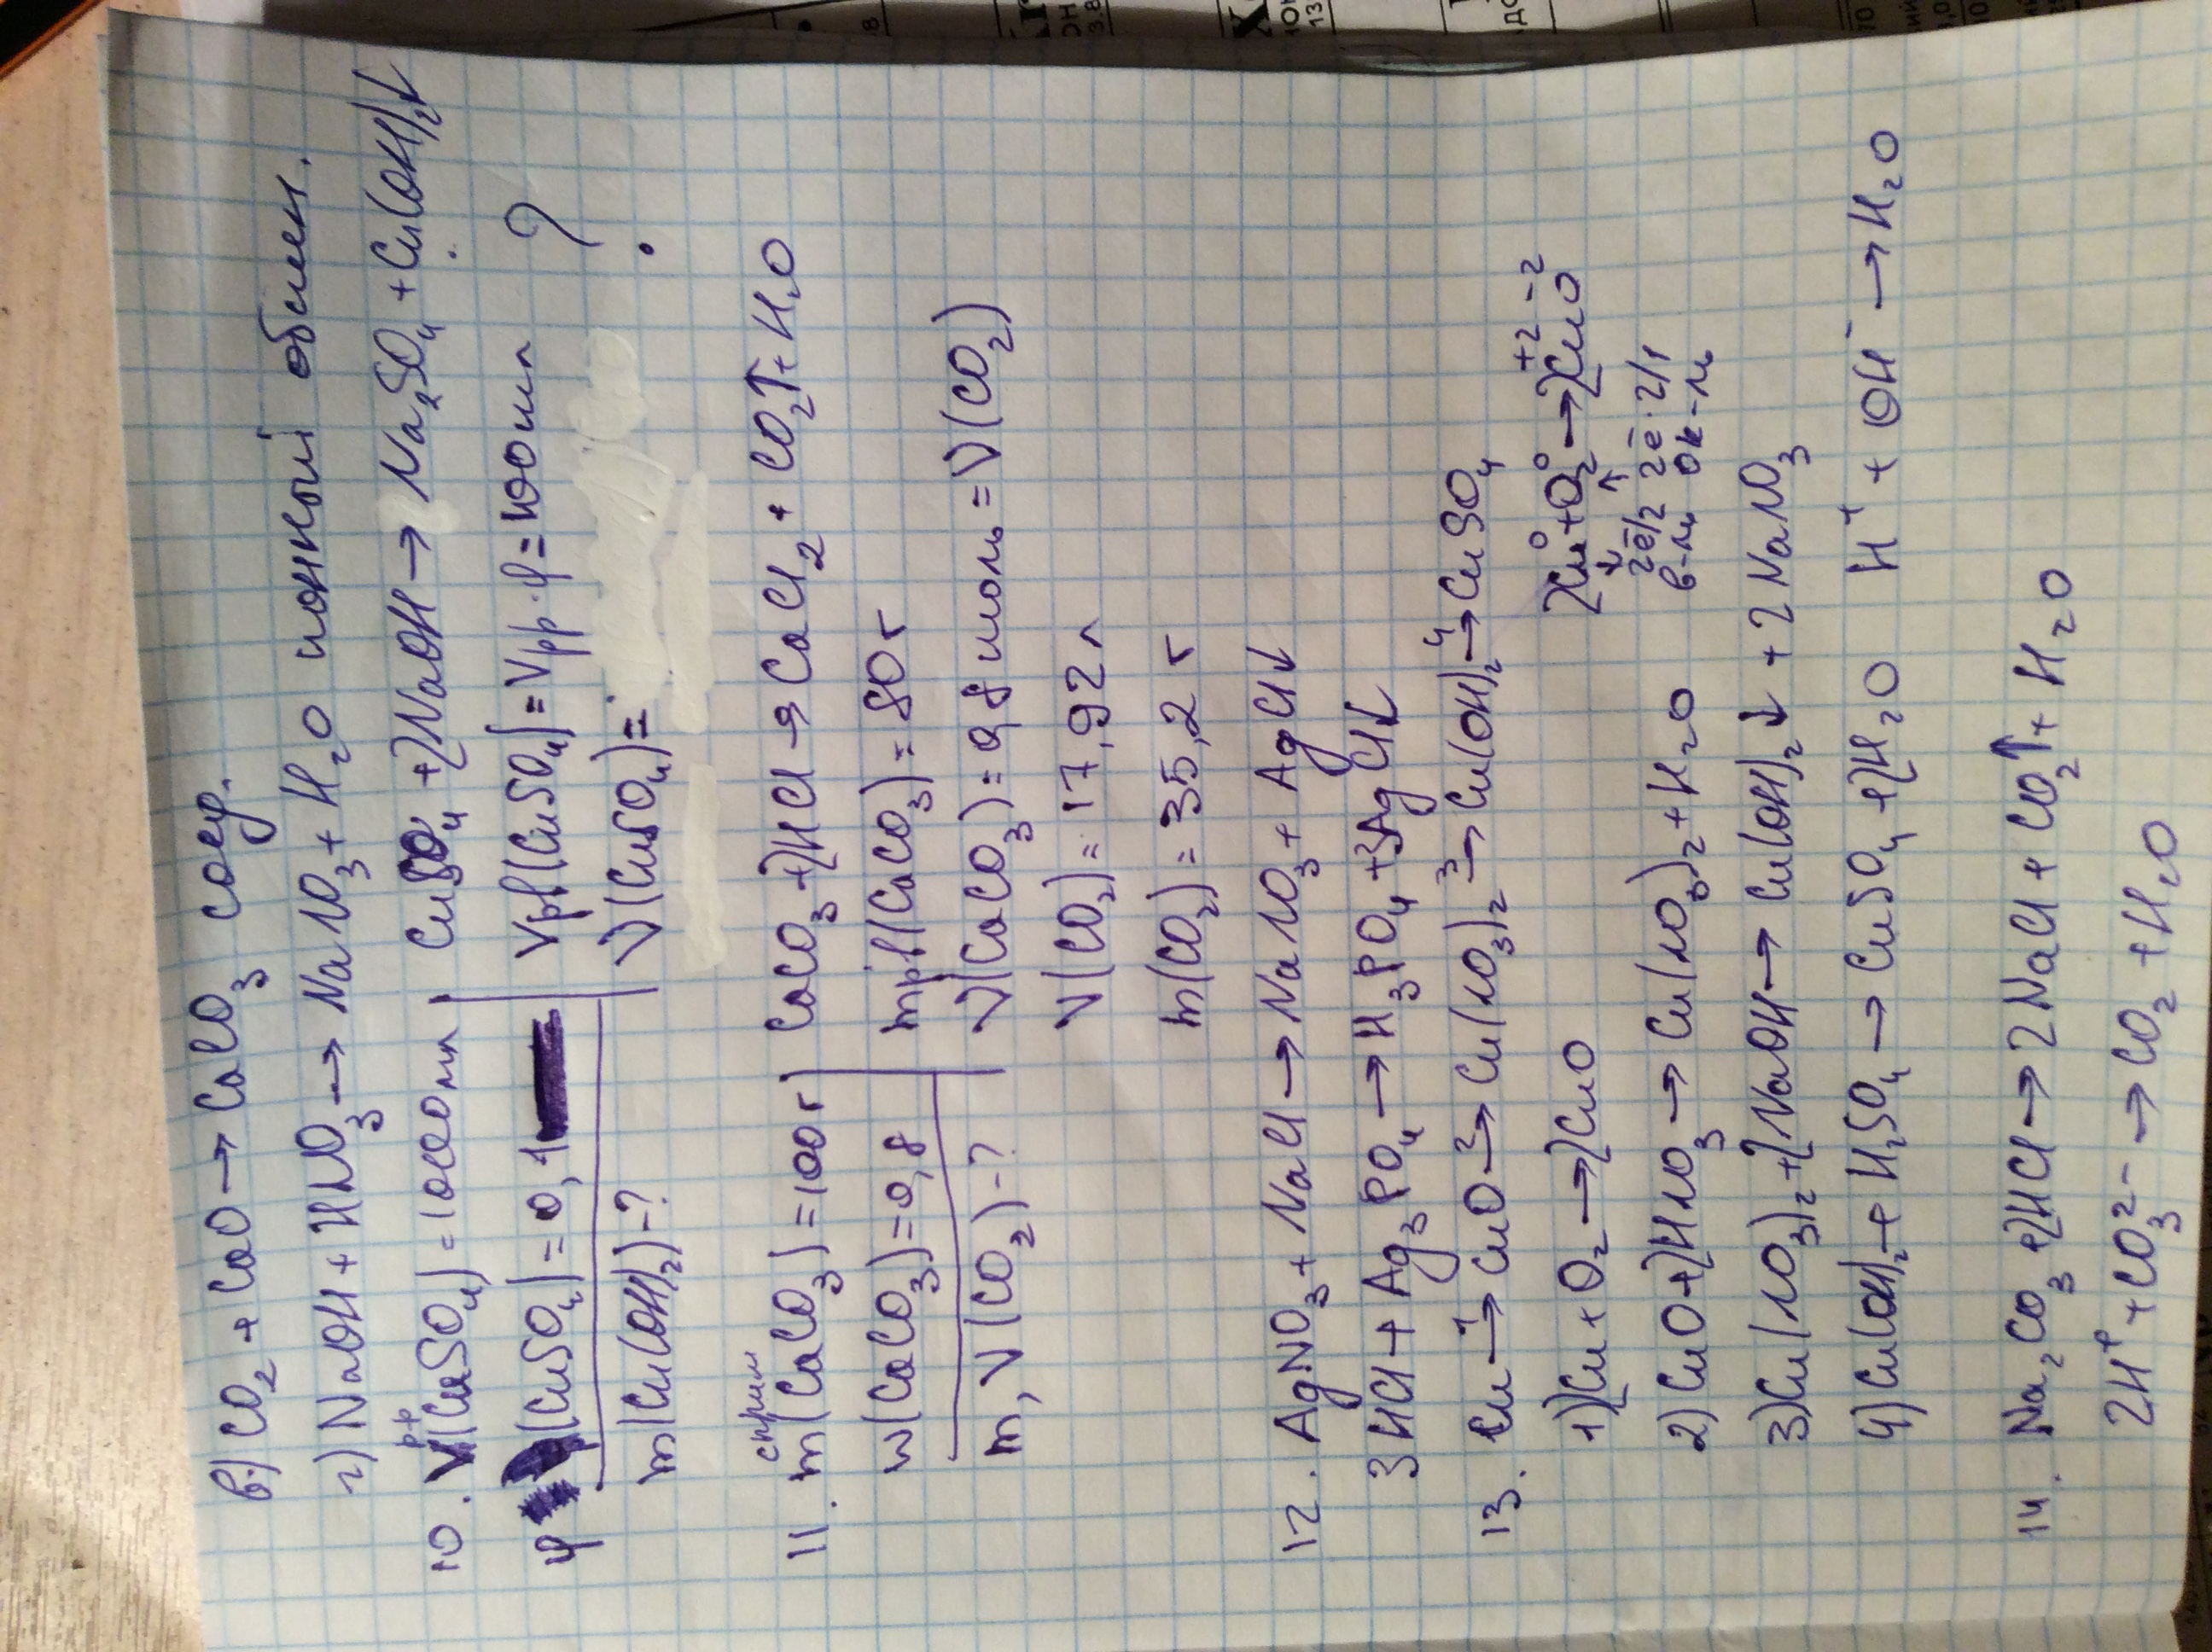 в) CO₂ + CaO → CaCO₃ соед.
г) NaOH + HNO₃ → NaNO₃ + H₂O ионный обмен.
10. Vрр(CuSO₄) = 1000мл
CuSO₄ + 2NaOH → Na₂SO₄ + Cu(OH)₂↓
φ(CuSO₄) = 0,1
Vрв(CuSO₄) = Vрр · φ = 100мл ?
m(Cu(OH)₂) - ?
ν(CuSO₄) =
11. mсприм(CaCO₃) = 100г
CaCO₃ + 2HCl → CaCl₂ + CO₂↑ + H₂O
w(CaCO₃) = 0,8
mрв(CaCO₃) = 80г
m, V(CO₂) - ?
ν(CaCO₃) = 0,8 моль = ν(CO₂)
V(CO₂) = 17,92л
m(CO₂) = 35,2 г
12. AgNO₃ + NaCl → NaNO₃ + AgCl↓
3HCl + Ag₃PO₄ → H₃PO₄ + 3AgCl↓
13. Cu →¹ CuO →² Cu(NO₃)₂ →³ Cu(OH)₂ →⁴ CuSO₄
1) 2Cu + O₂ → 2CuO
2Cu⁰ + O₂⁰ → 2Cu⁺²O⁻²
↓ ↑
2ē/2 2ē·2/1
в-ль ок-ль
2) CuO + 2HNO₃ → Cu(NO₃)₂ + H₂O
3) Cu(NO₃)₂ + 2NaOH → Cu(OH)₂↓ + 2NaNO₃
4) Cu(OH)₂ + H₂SO₄ → CuSO₄ + 2H₂O H⁺ + OH⁻ → H₂O
14. Na₂CO₃ + 2HCl → 2NaCl + CO₂↑ + H₂O
2H⁺ + CO₃²⁻ → CO₂ + H₂O